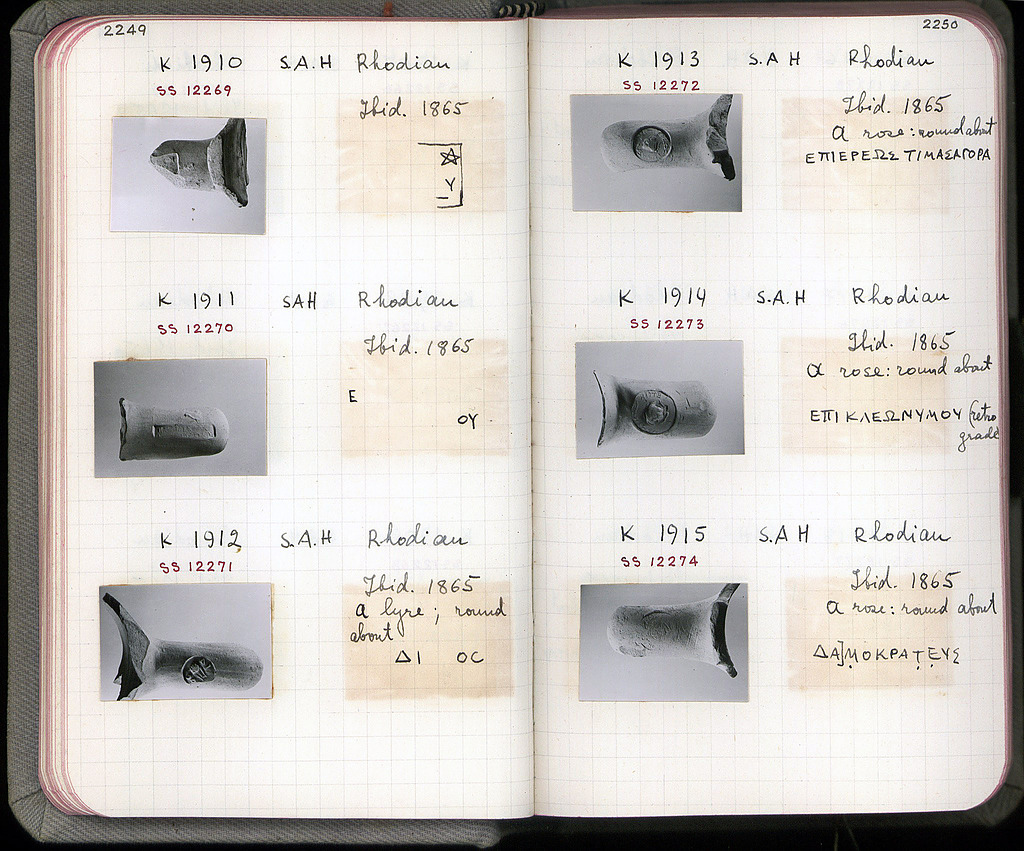 2249
K 1910 S.A.H Rhodian
SS 12269
Ibid. 1865
Υ
K 1911 SAH Rhodian
SS 12270
Ibid. 1865
Ε
ΟΥ
K 1912 S.A.H Rhodian
SS 12271
Ibid. 1865
a lyre; round
about
ΔΙ ΟC
2250
K 1913 S.A H Rhodian
SS 12272
Ibid. 1865
a rose: round about
ΕΠΙΕΡΕΩΣ ΤΙΜΑΣΑΓΟΡΑ
K 1914 S.A.H Rhodian
SS 12273
Ibid. 1865
a rose: round about
ΕΠΙ ΚΛΕΩΝΥΜΟΥ (retro
grade
K 1915 S.A H Rhodian
SS 12274
Ibid. 1865
a rose: round about
ΔΑ]Μ̣ΟΚΡΑΤ̣Ε̣ΥΣ